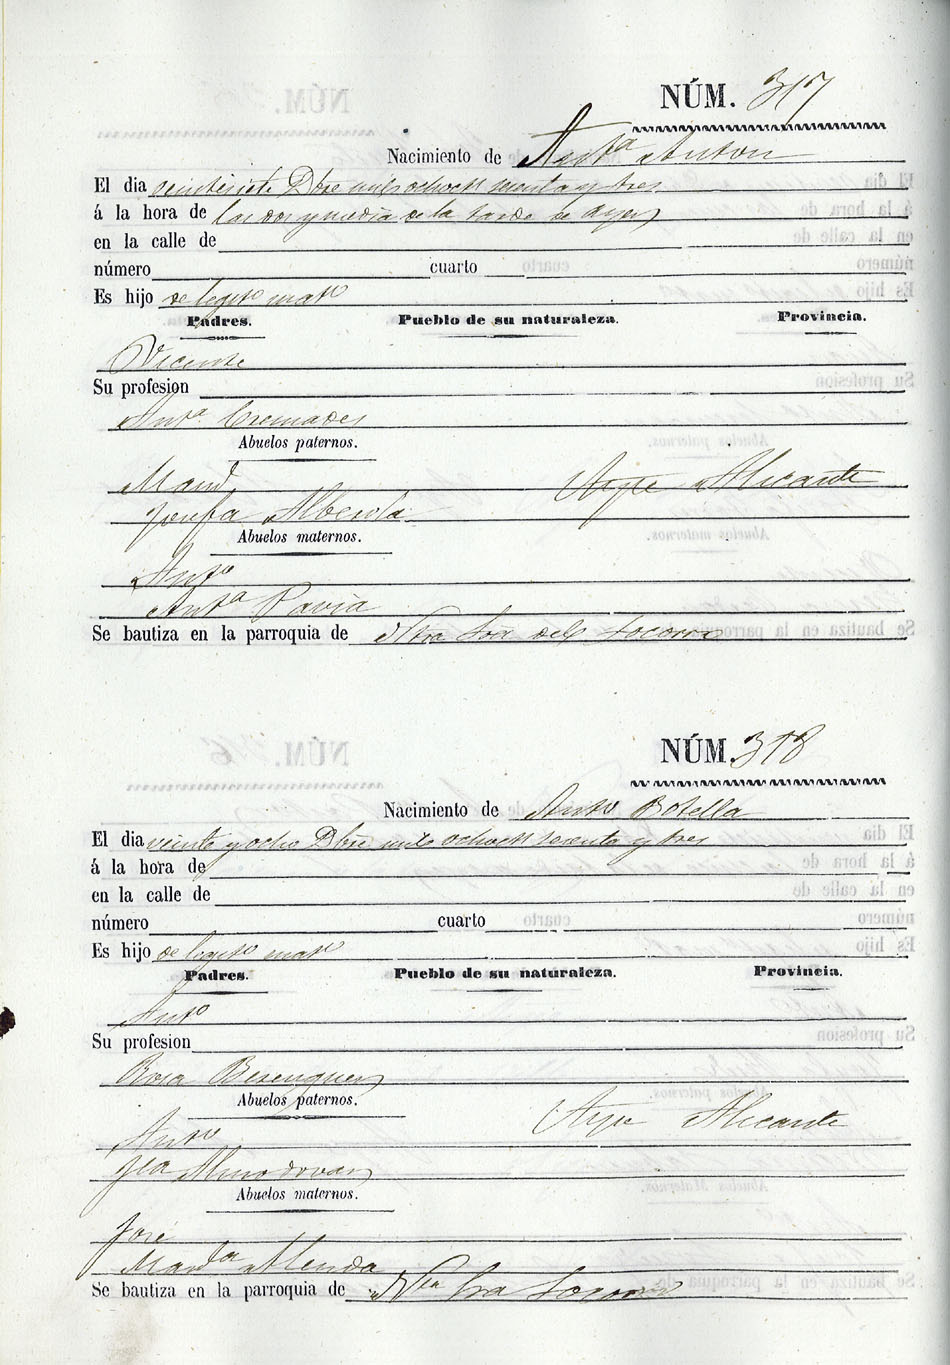 NÚM. 317
Nacimiento de Antª Anton
El dia veintisiete Dbre mil ochocts sesenta y tres
á la hora de las dos y media de la tarde de ayer
en la calle de
número cuarto
Es hijo de legitº matº
Padres. Pueblo de su naturaleza. Provincia.
Vicente
Su profesion
Antª Cremades
Abuelos paternos.
Manl Aspe Alicante
Josefa Alberola
Abuelos maternos.
Antº
Antª Pavia
Se bautiza en la parroquia de Ntra Sra del Socorro
NÚM. 318
Nacimiento de Antº Botella
El dia veinte y ocho Dbre mil ochocts sesenta y tres
á la hora de
en la calle de
número cuarto
Es hijo de legitº matº
Padres. Pueblo de su naturaleza. Provincia.
Antº
Su profesion
Rosa Berenguer
Abuelos paternos.
Antº Aspe Alicante
Almodovar
Abuelos maternos.
José
Manla
Se bautiza en la parroquia de Ntra Sra Socorro